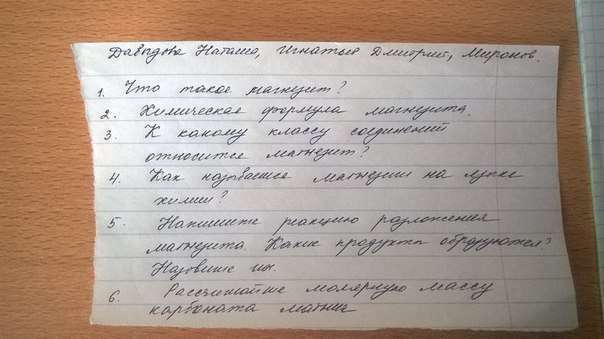 Давыдова Наташа, Игнатьев Дмитрий, Миронов.
1. Что такое магнезит?
2. Химическая формула магнезита.
3. К какому классу соединений
относится магнезит?
4. Как называется магнезит на языке
химии?
5 Напишите реакцию разложения
магнезита. Какие продукты образуются?
Назовите их.
6. Рассчитайте молярную массу
карбоната магния